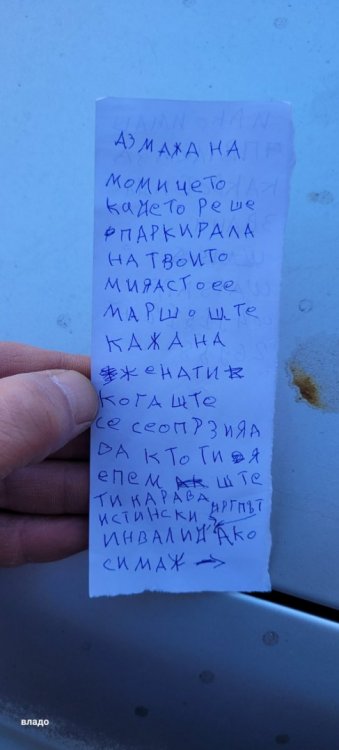 АЗ МАЖА НА
МОМИЧЕТО
КАДЕТО РЕШЕ
ПАРКИРАЛА
НА ТВОИТО
МИЯАСТО ЕЕ
МАРШ О ШТЕ
КАЖА НА
ЖЕНА ТИ
КОГА ШТЕ
СЕ СЕОПРЗИЯА
DА КТО ТИ Я
ЕПЕМ ШТЕ
ТИ КАРАВА
ИСТИНСКИ
ИНВАЛИД АКО
СИ МАЖ →
владо